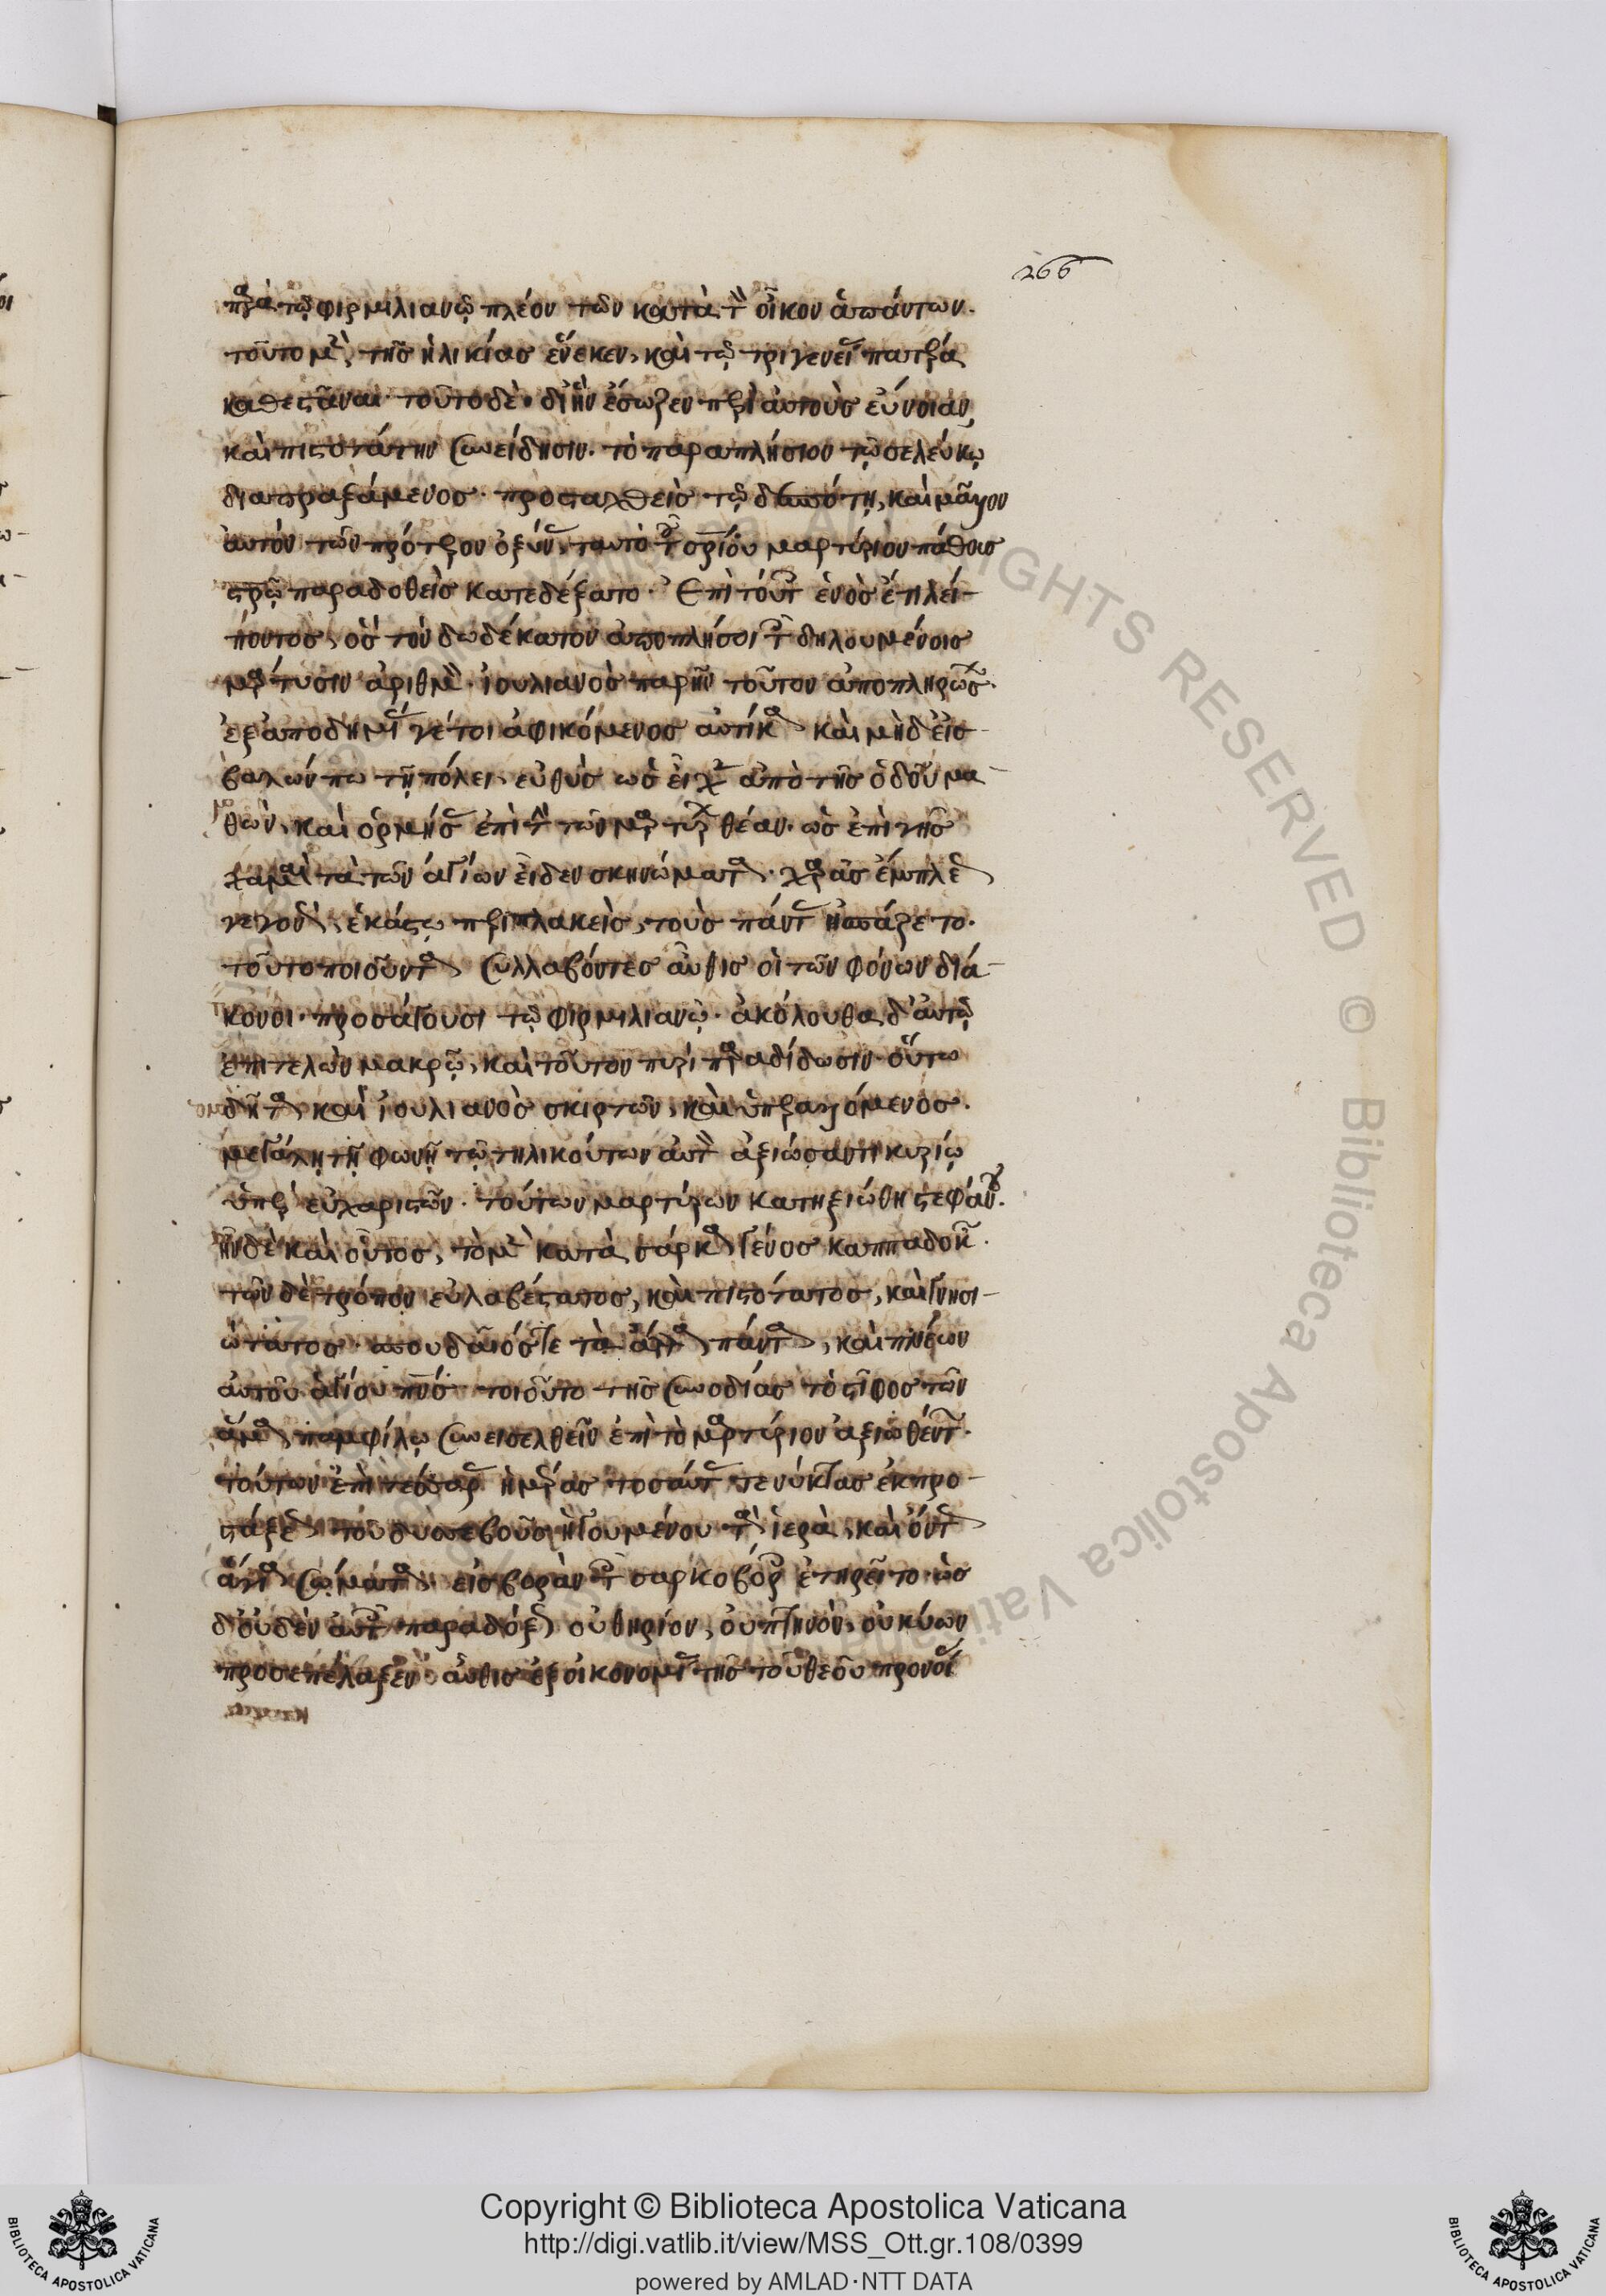 266
παρὰ τῷ φιρμιλιανῷ πλέον τῶν κατὰ τὸν οἶκον ἁπάντων.
τοῦτο μὲν, τῆς ἡλικίας ἕνεκεν, καὶ τῷ τριγενείας πατέρα
καθεστᾶναι· τοῦτο δὲ· δι' ἣν ἔσωζεν περὶ αὐτοὺς εὔνοιαν,
καὶ πιστοτάτην συνείδησιν. τὸ παραπλήσιον τῷ σελεύκῳ
διαπραξάμενος· προσαχθεὶς τῷ δεσπότῃ, καὶ μᾶλλον
αὐτὸν τῶν πρότερον ὀξύνας, ταυτὸ τοῦ σρίου μαρτύριον πάθους
στρῷ παραδοθεὶς κατεδέξατο· Ἐπὶ τούτοις ἑνὸς ἔτι λεί-
ποντος, ὃς τὸν δωδέκατον ἀποπλήσοι τοῖς δηλουμένοις
μάρτυσιν ἀριθμὸν· ἰουλιανὸς παρῆν τοῦτον ἀποπληρώσων.
ἐξ ἀποδημίας γέ τοι ἀφικόμενος αὐτίκα καὶ μηδ' εἰσ-
βαλών πω τῇ πόλει, εὐθὺς ὡς εἶχεν ἀπὸ τῆς ὁδοῦ μα-
θὼν, καὶ ὁρμήσας ἐπὶ τὴν τῶν μαρτύρων θέαν· ὡς ἐπὶ γῆς
χαμαὶ τὰ τῶν ἁγίων εἶδεν σκηνώματα· χαρᾶς ἔμπλεως
γεγονὼς, ἑκάστῳ περιπλακεὶς, τοὺς πάντας ἠσπάζετο.
τοῦτο ποιοῦντα συλλαβόντες αὖθις οἱ τῶν φόνων διά-
κονοι· προσάγουσι τῷ φιρμιλιανῷ· ἀκόλουθα δ' αὐτῷ
ἐπιτελῶν μακρῷ, καὶ τοῦτον πυρὶ παραδίδωσιν· οὕτω
δῆτα καὶ ἰουλιανὸς σκιρτῶν, καὶ ὑπεραγόμενος.
μεγάλῃ τῇ φωνῇ τῷ τηλικούτων αὐτὸν ἀξιώσαντι κυρίῳ
ὑπερευχαριστῶν· τούτων μαρτύρων κατηξιώθη στεφάνου.
ἦν δὲ καὶ οὗτος, τὸ μὲν κατὰ σάρκα γένος καππαδόκης.
τὸν δὲ τρόπον εὐλαβέστατος, καὶ πιστότατος, καὶ γνησι-
ώτατος· σπουδαῖός τε τὰ ἄλλα πάντα, καὶ πνέων
αὐτοῦ ἁγίου πνς· τοιοῦτο τῆς συνοδίας τὸ στῖφος τῶν
ἅμα παμφίλῳ συνεισελθεῖν ἐπὶ τὸ μαρτύριον ἀξιωθέντων.
τούτων ἐπὶ τέσσαρας ἡμέρας τοσαύτας τε νύκτας ἐκ προ-
στάξεως τοῦ δυσσεβοῦς ἡγουμένου τὰ ἱερὰ, καὶ ὄντως
ἅγια σώματα· εἰς βορὰν τοῖς σαρκοβόροις ἐτηρεῖτο· ὡς
δ' οὐδὲν αὐτοῖς παραδόξως οὐ θηρίον, οὐ πτηνὸν, οὐ κύων
προσεπέλαζεν· αὖθις ἐξ οἰκονομίας τῆς τοῦ θεοῦ προνοίας
Copyright © Biblioteca Apostolica Vaticana
http://digi.vatlib.it/view/MSS_Ott.gr.108/0399
powered by AMLAD·NTT DATA